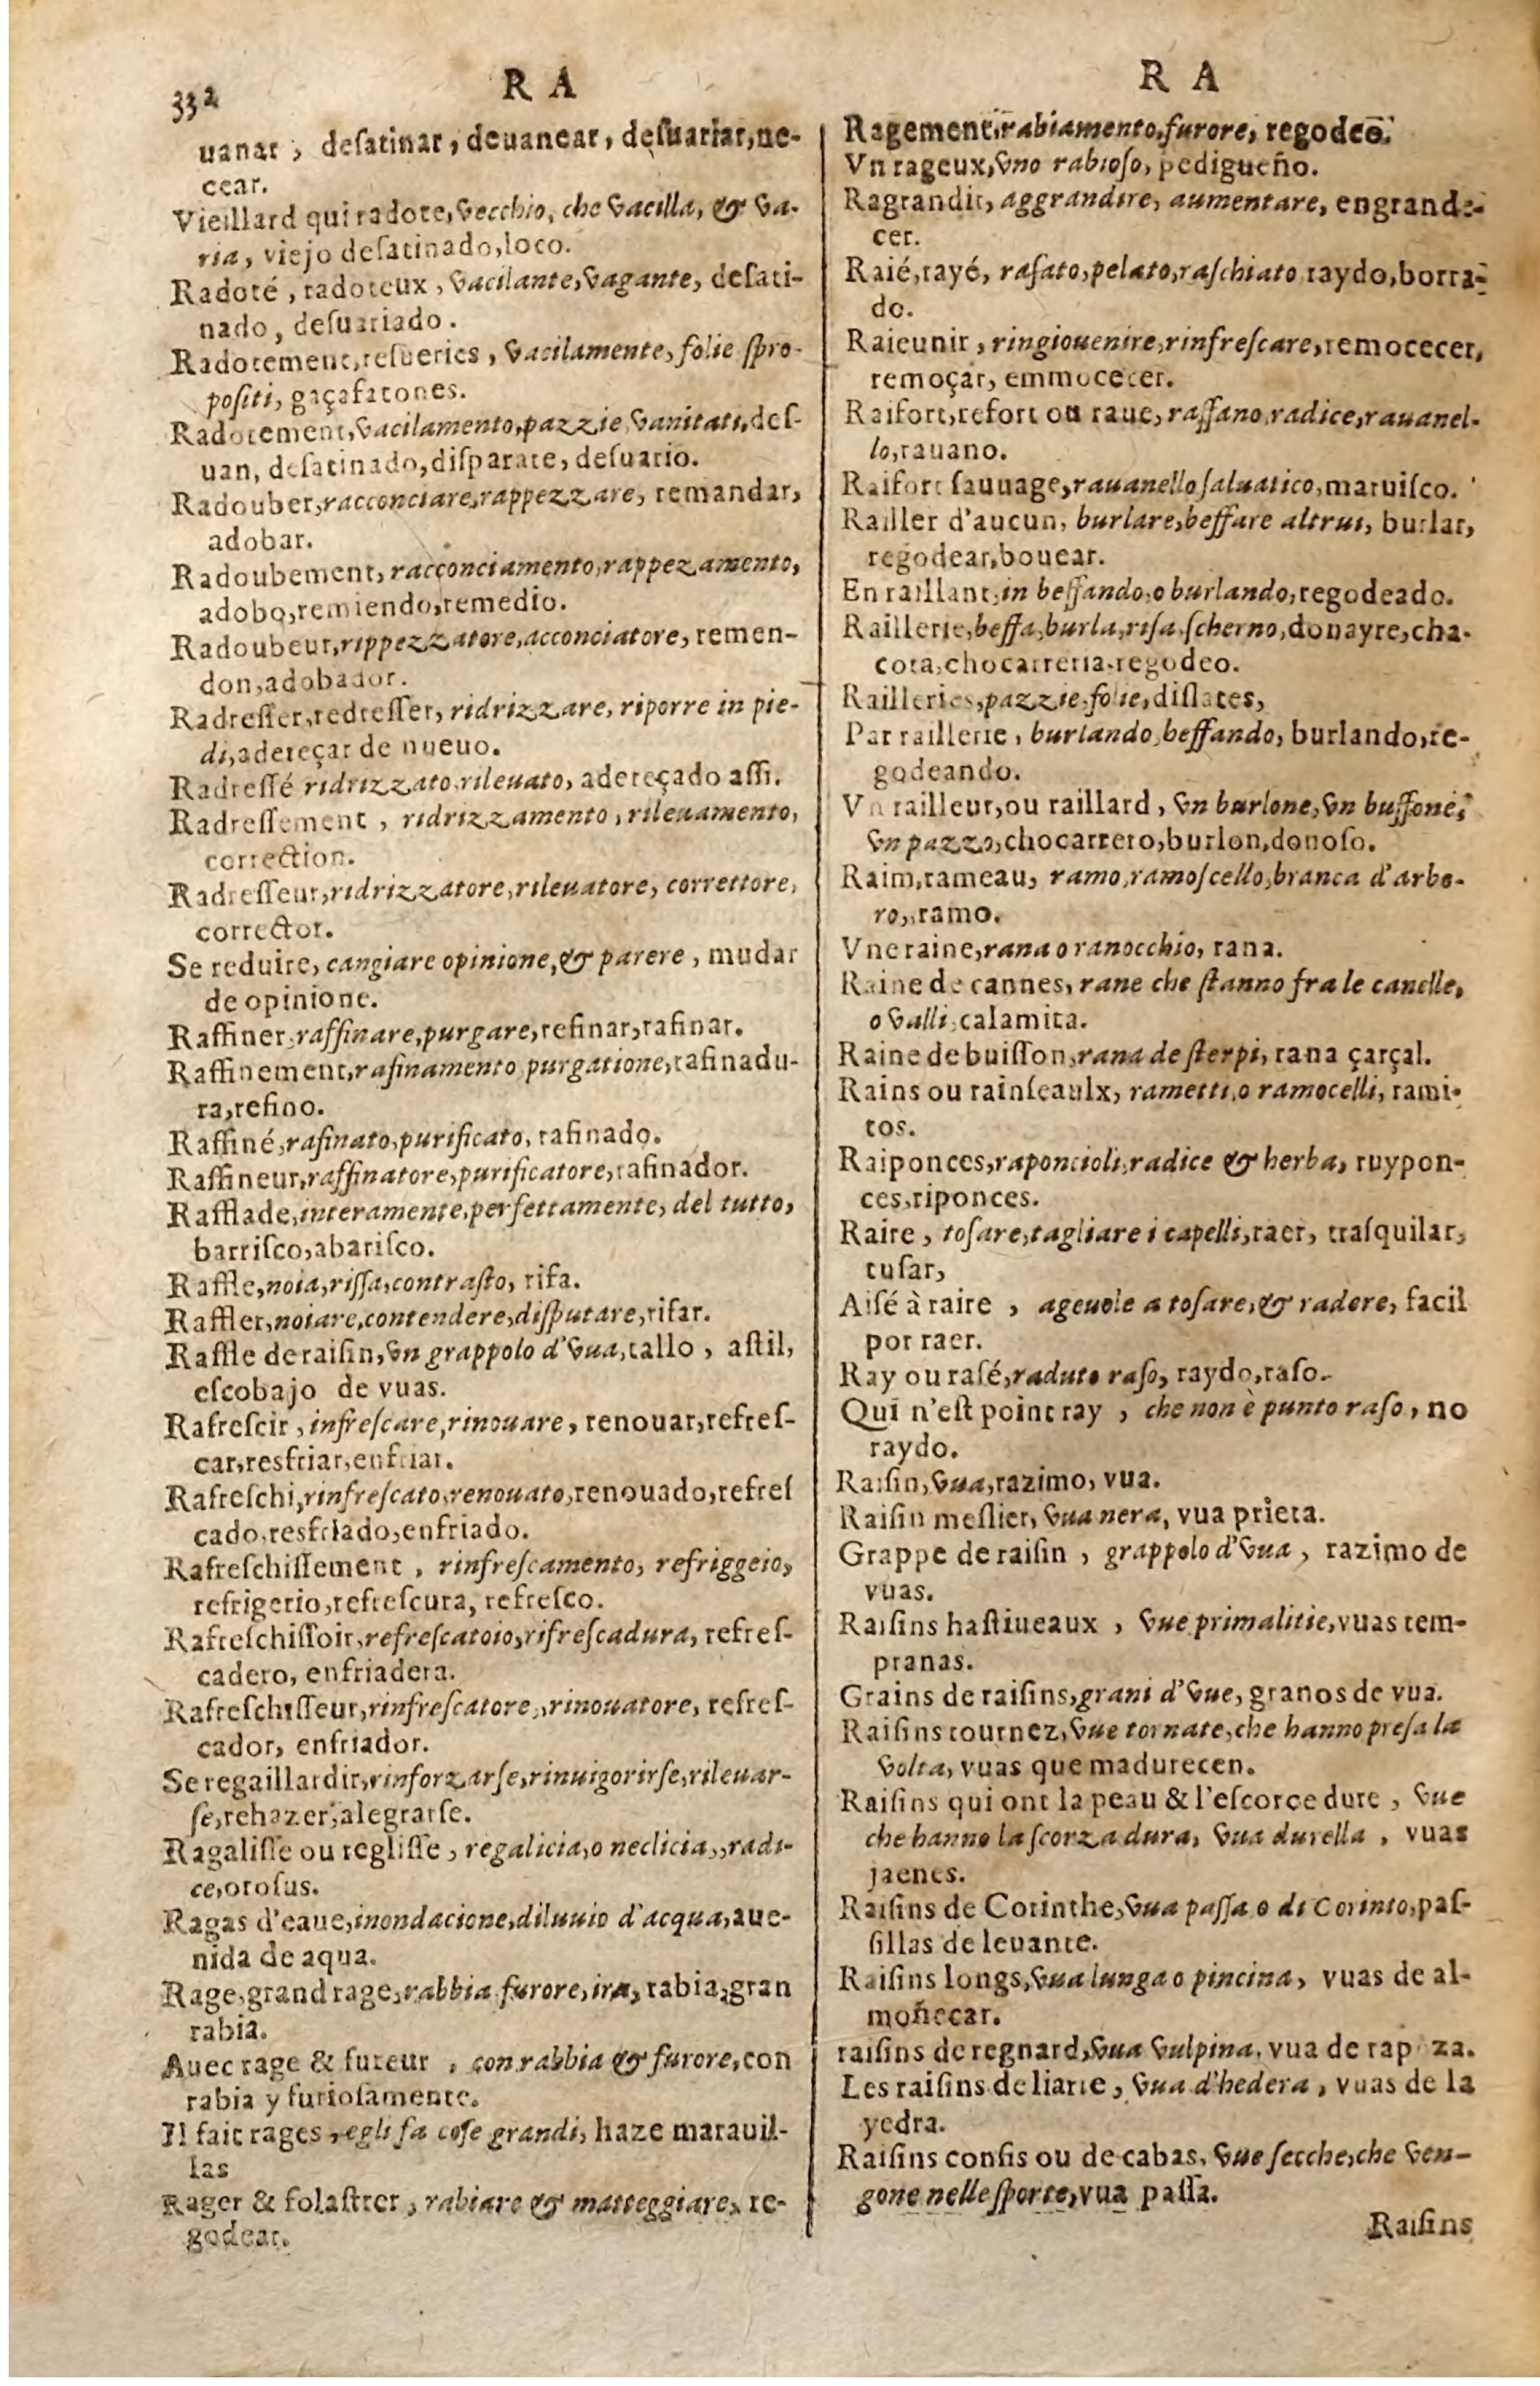 332
R A
uanar, deſatinar, deuanear, deſuariar, ne-
cear.
Vieillard qui radote, vecchio, che vacilla, & va-
ria, viejo deſatinado, loco.
Radoté, radoteux, vacilante, vagante, deſati-
nado, deſuariado.
Radotement, reſueries, vacilamente, folie ſpro-
poſiti, gaçafatones.
Radotement, vacilamento, pazzie vanitati, deſ-
uan, deſatinado, diſparate, deſuario.
Radouber, racconciare, rappezzare, remandar,
adobar.
Radoubement, racconciamento, rappezamento,
adobo, remiendo, remedio.
Radoubeur, rippezzatore, acconciatore, remen-
don, adobador.
Radreſſer, redreſſer, ridrizzare, riporre in pie-
di, adereçar de nueuo.
Radreſſé ridrizzato, rileuato, adereçado aſſi.
Radreſſement, ridrizzamento, rileuamento,
correction.
Radreſſeur, ridrizzatore, rileuatore, correttore,
corrector.
Se reduire, cangiare opinione, & parere, mudar
de opinione.
Raffiner, raffinare, purgare, refinar, rafinar.
Raffinement, rafinamento purgatione, rafinadu-
ra, refino.
Raffiné, rafinato, purificato, rafinado.
Raffineur, raffinatore, purificatore, rafinador.
Rafflade, interamente, perfettamente, del tutto,
barriſco, abariſco.
Raffle, noia, riſſa, contraſto, rifa.
Raffler, noiare, contendere, diſputare, rifar.
Raffle de raiſin, vn grappolo d'vua, tallo, aſtil,
eſcobajo de vuas.
Rafreſcir, infreſcare, rinouare, renouar, refreſ-
car, resfriar, enfriar.
Rafreſchi, rinfreſcato, renouato, renouado, refreſ
cado, resfriado, enfriado.
Rafreſchiſſement, rinfreſcamento, refriggeio,
refrigerio, refreſcura, refreſco.
Rafreſchiſſoir, refreſcatoio, rifreſcadura, refreſ-
cadero, enfriadera.
Rafreſchiſſeur, rinfreſcatore,, rinouatore, refreſ-
cador, enfriador.
Se regaillardir, rinforzarſe, rinuigorirſe, rileuar-
ſe, rehazer, alegrarſe.
Ragaliſſe ou regliſſe, regalicia, o neclicia,, radi-
ce, oroſus.
Ragas d'eaue, inondacione, diluuio d'acqua, aue-
nida de aqua.
Rage, grand rage, rabbia furore, ira, rabia, gran
rabia.
Auec rage & fureur, con rabbia & furore, con
rabia y furioſamente.
Il fait rages, egli fa coſe grandi, haze marauil-
las
Rager & folaſtrer, rabiare & matteggiare, re-
godear.
R A
Ragement, rabiamento, furore, regodeo.
Vn rageux, vno rabioſo, pedigueño.
Ragrandir, aggrandire, aumentare, engrande-
cer.
Raié, rayé, raſato, pelato, raſchiato raydo, borra-
do.
Raieunir, ringiouenire, rinfreſcare, remocecer,
remoçar, emmocecer.
Raifort, refort ou raue, raffano, radice, rauanel-
lo, rauano.
Raifort ſauuage, rauanello ſaluatico, maruiſco.
Railler d'aucun, burlare, beffare altrui, burlar,
regodear, bouear.
En raillant, in beffando, o burlando, regodeado.
Raillerie, beffa, burla, riſa, ſcherno, donayre, cha-
cota, chocarreria, regodeo.
Railleries, pazzie, folie, diſlates,
Par raillerie, burlando, beffando, burlando, re-
godeando.
Vn railleur, ou raillard, vn burlone, vn buffone,
vn pazzo, chocarrero, burlon, donoſo.
Raim, rameau, ramo, ramoſcello, branca d'arbo-
ro,, ramo.
Vne raine, rana o ranocchio, rana.
Raine de cannes, rane che ſtanno fra le canelle,
o valli, calamita.
Raine de buiſſon, rana de ſterpi, rana çarçal.
Rains ou rainſeaulx, rametti, o ramocelli, rami-
tos.
Raiponces, raponcioli, radice & herba, ruypon-
ces, riponces.
Raire, toſare, tagliare i capelli, raer, traſquilar,
tuſar,
Aiſé à raire, ageuole a toſare, & radere, facil
por raer.
Ray ou raſé, raduto raſo, raydo, raſo.
Qui n'eſt point ray, che non è punto raſo, no
raydo.
Raiſin, vua, razimo, vua.
Raiſin meſlier, vua nera, vua prieta.
Grappe de raiſin, grappolo d'vua, razimo de
vuas.
Raiſins haſtiueaux, vue primalitie, vuas tem-
pranas.
Grains de raiſins, grani d'vue, granos de vua.
Raiſins tournez, vue tornate, che hanno preſa la
volta, vuas que madurecen.
Raiſins qui ont la peau & l'eſcorce dure, vue
che hanno la ſcorza dura, vua durella, vuas
jaenes.
Raiſins de Corinthe, vua paſſa o di Corinto, paſ-
ſillas de leuante.
Raiſins longs, vua lunga o pincina, vuas de al-
moñecar.
raiſins de regnard, vua vulpina, vua de rapoza.
Les raiſins de liarre, vua d'hedera, vuas de la
yedra.
Raiſins confis ou de cabas, vue ſecche, che ven-
gone nelle ſporte, vua paſſa.
Raiſins